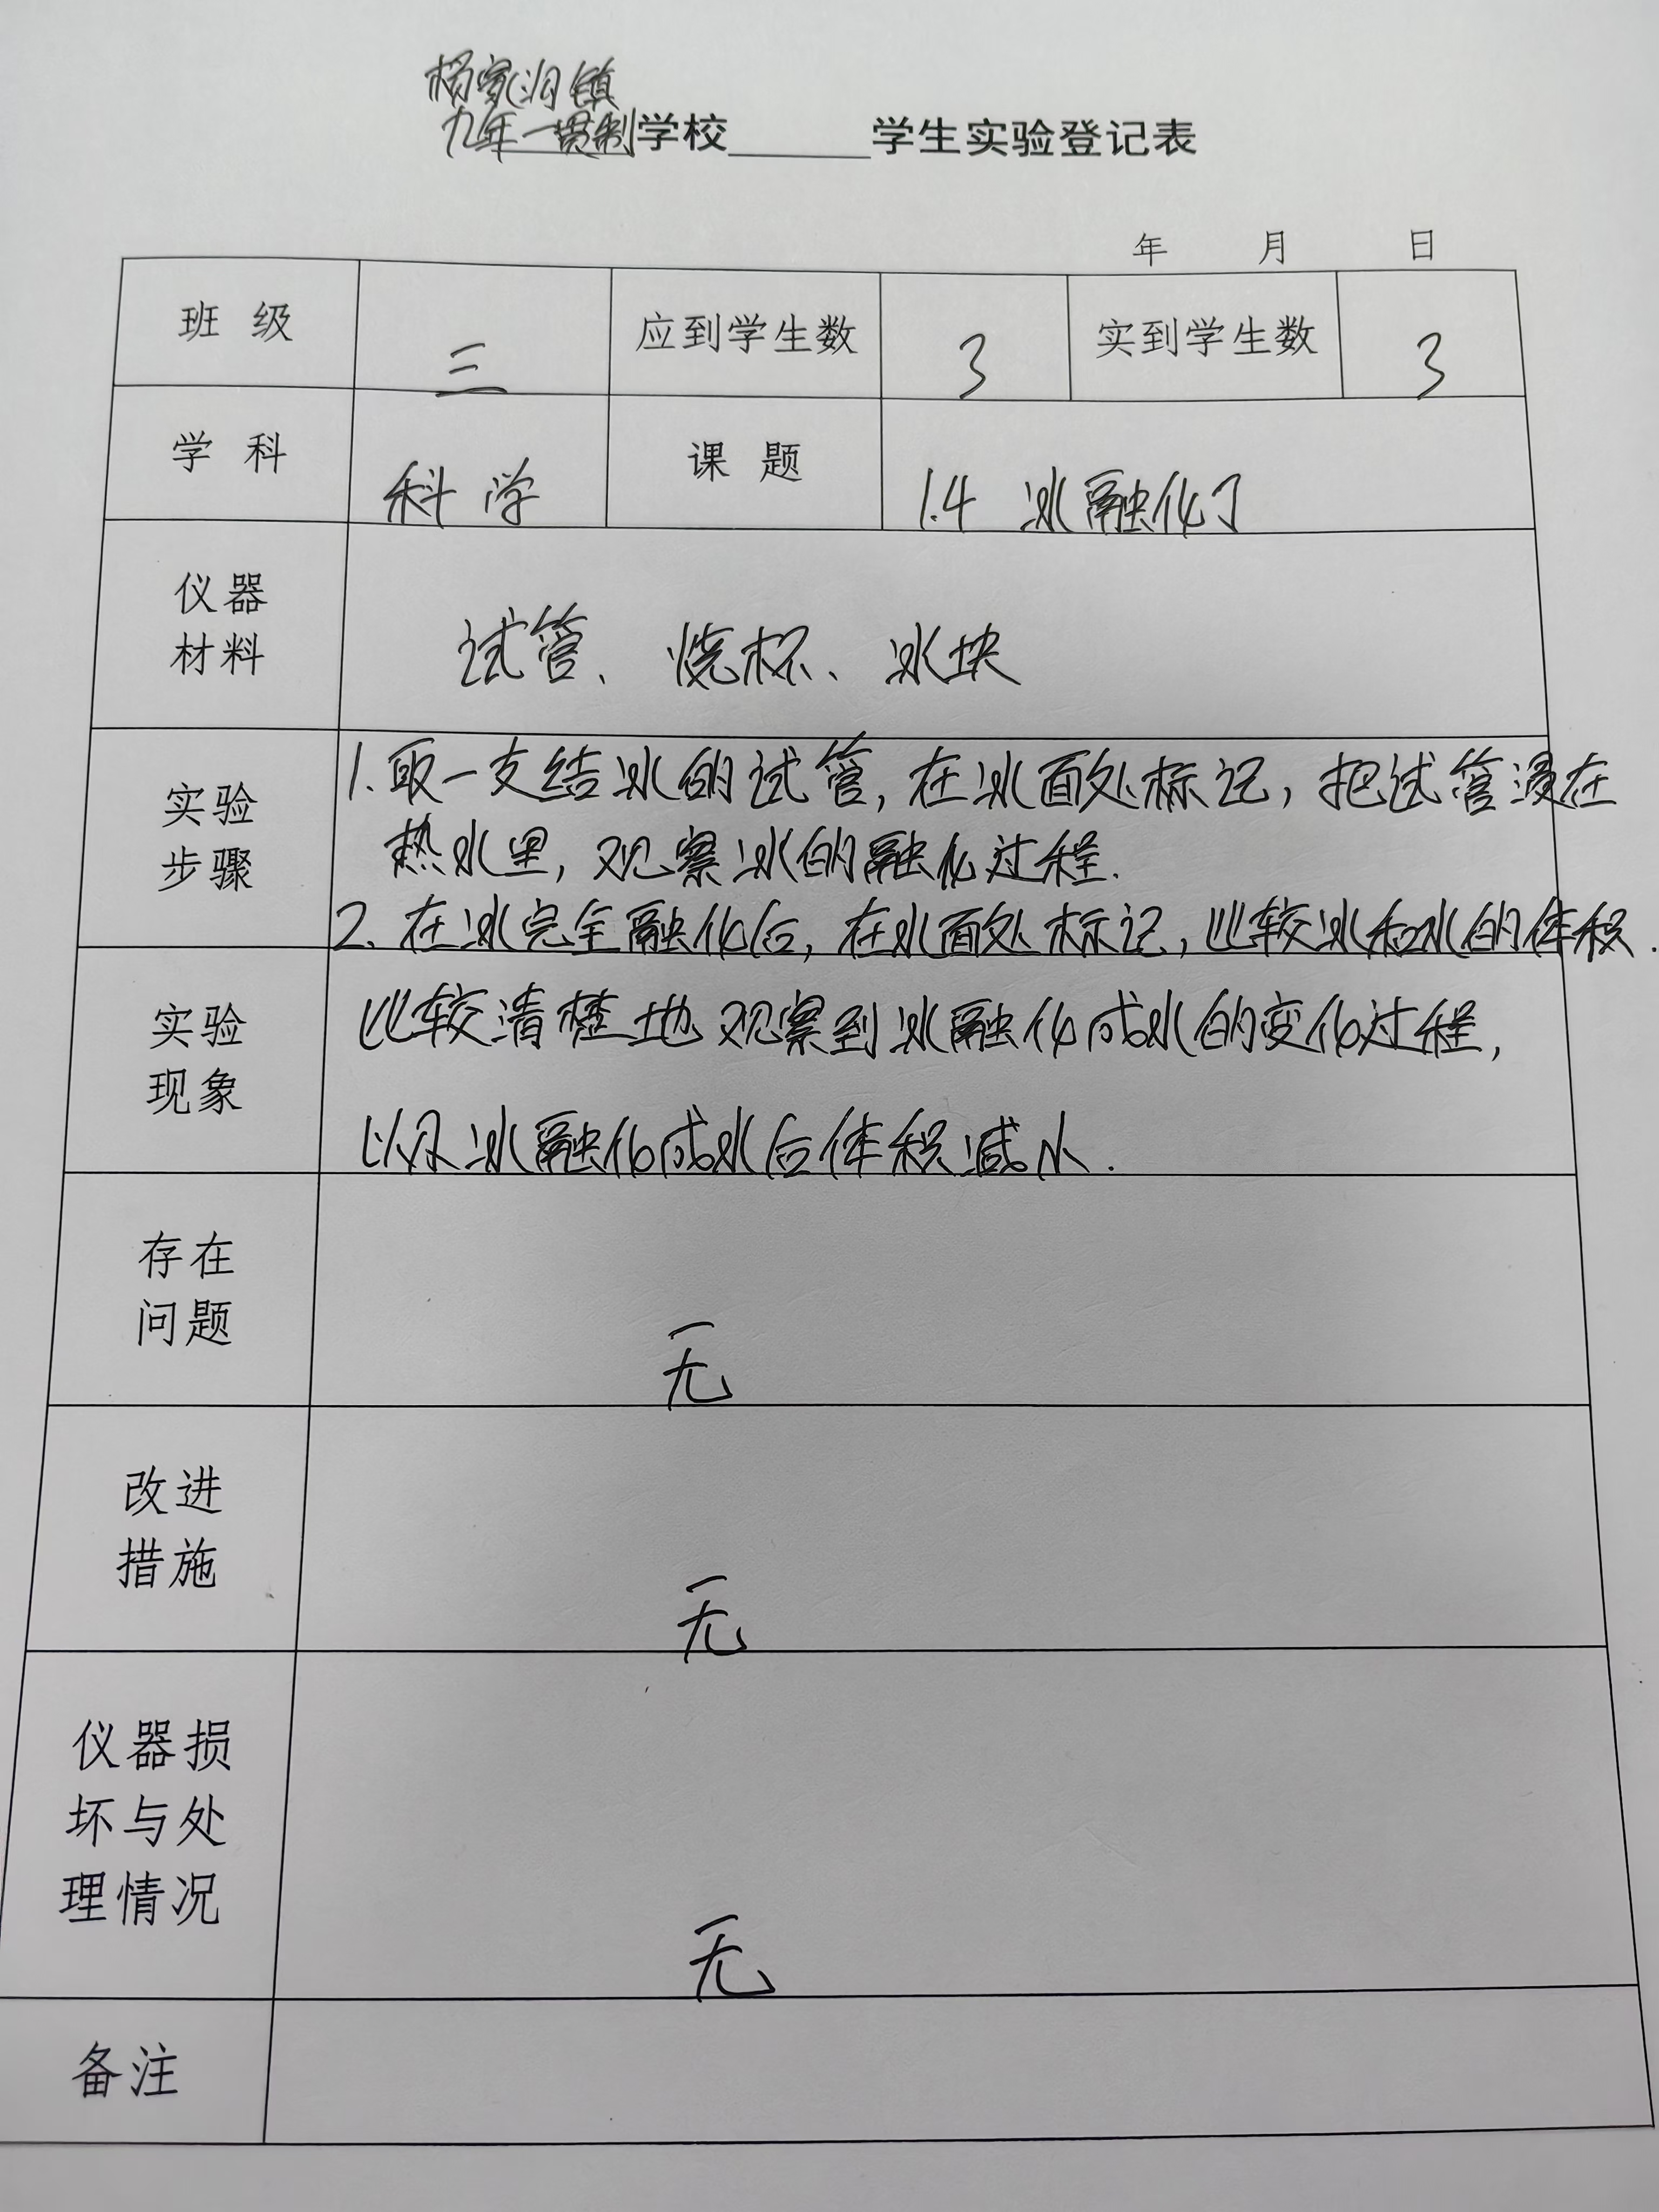 杨家沟镇
九年一贯制学校______学生实验登记表
年 月 日
班 级 三 应到学生数 3 实到学生数 3
学 科 科学 课 题 1.4 冰融化了
仪器
材料
试管、烧杯、冰块
实验
步骤
1.取一支结冰的试管,在冰面处标记,把试管浸在
热水里,观察冰的融化过程.
2.在冰完全融化后,在水面处标记,比较冰和水的体积.
实验
现象
比较清楚地观察到冰融化成水的变化过程,
以及冰融化成水后体积减小.
存在
问题
无
改进
措施
无
仪器损
坏与处
理情况
无
备注